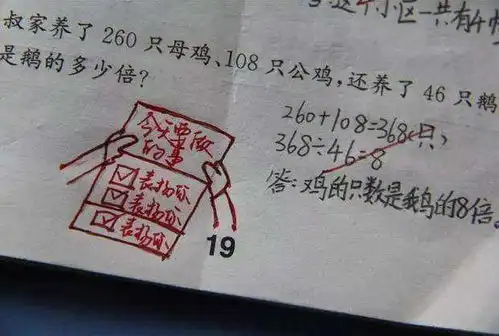 这个小区一共有4
叔家养了 260 只母鸡、108 只公鸡,还养了 46 只鹅
是鹅的多少倍?
260+108=368(只)
368÷46=8
答:鸡的只数是鹅的8倍。
今天要做
的事
表扬你
表扬你
表扬你
19